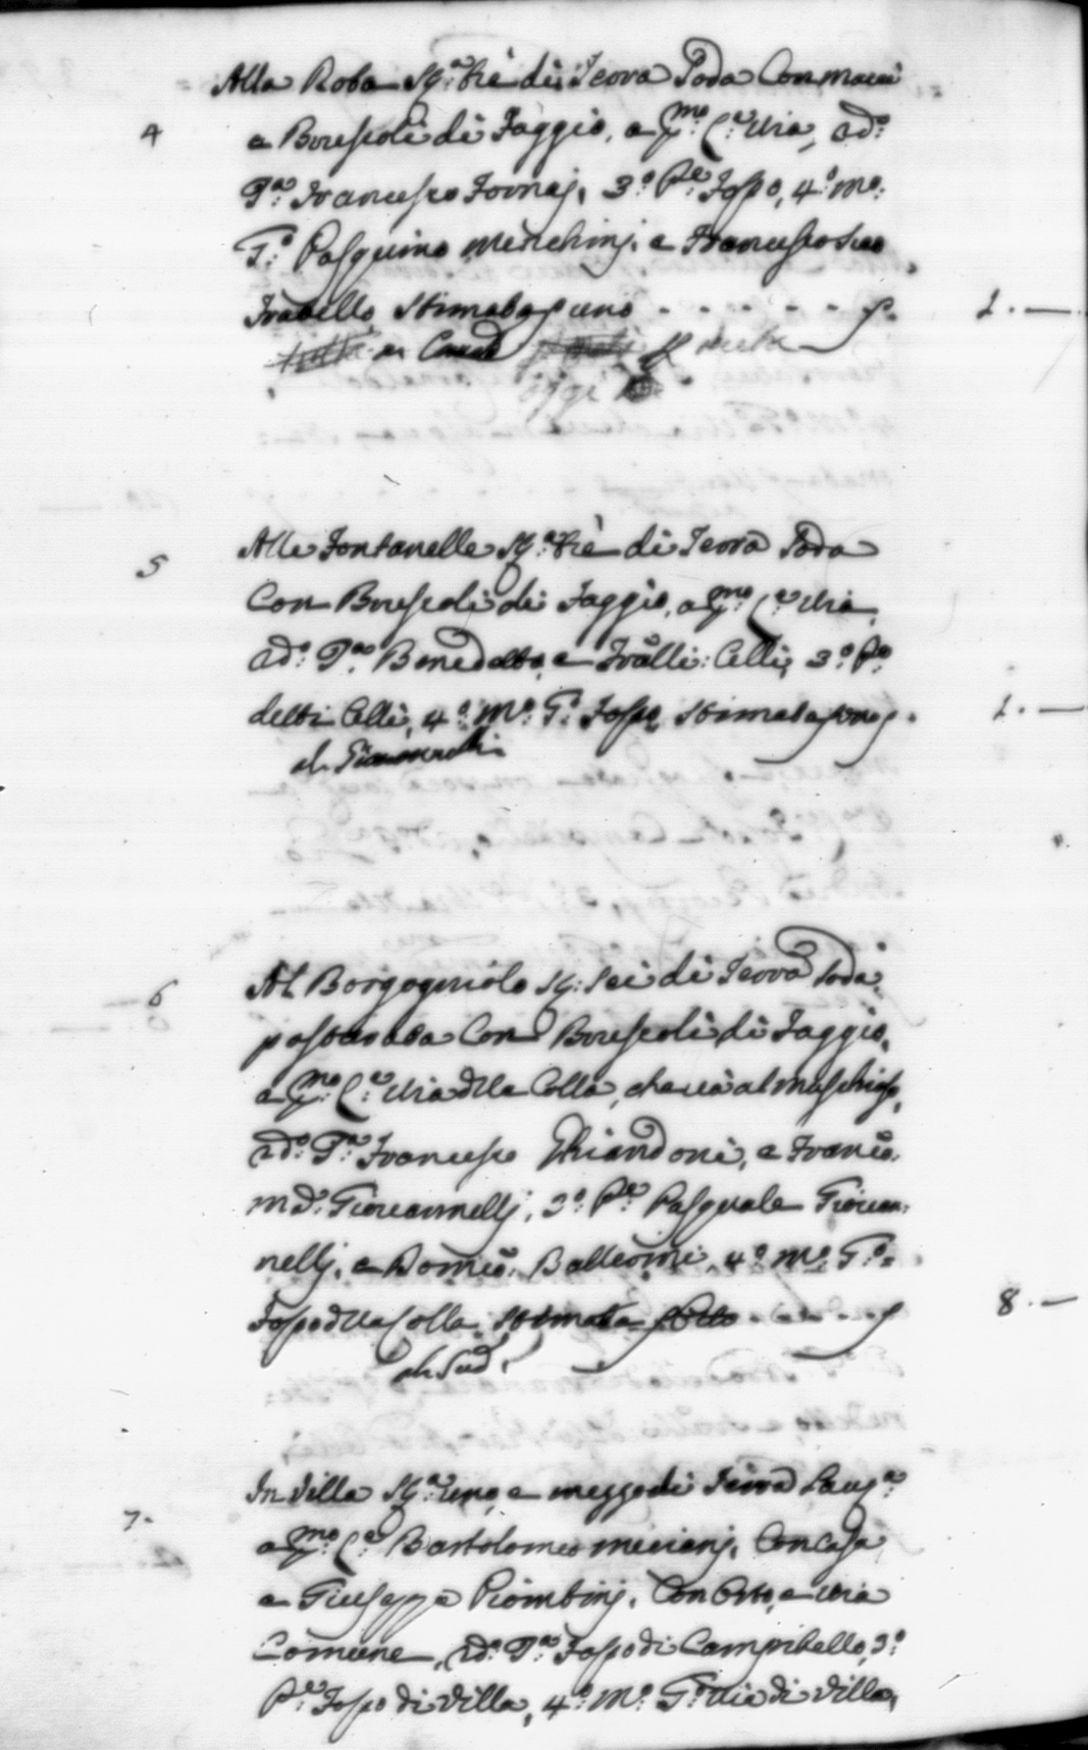 Alla Roba Sq.ª trè di Terra Soda Con macci
4
a Borescoli di Faggio, a p.mo C.ª Via, ad.º
P.ª Francesco Fornaj. 3.º P.e Fosso, 4.º m.º
T.º Pasquino Menchinj. e Francesco suo
Fratello stimata p uno - - - - - - - p. 1. —
in
oggi
5
Alle Fontanelle Sq.ª trè di Terra Soda
Con Borescoli di Faggio, a p.mo C.ª Via,
ad.º P.ª Benedetto, e Fratelli: Celli, 3.º P.e
detti Celli, 4.º M.º T.º Fosso, stimata p uno p. 1. —
6
Al Borgogniolo Sq: Sei di Terra Soda
pastinata Con Borescoli di Faggio,
a p.mo C.ª Via della Colla, che và al
ad.º P.ª Francesco Ghiandoni, e Franco.
m.d: Giovannellj. 3.º P.e Pasquale Giovan:
nellj. e Domco. 4.º M.º T.º
Fosso della Colla, stimata p otto - - - - p 8. —
7.
In Villa Sq.ª uno, e mezzo di Terra Lavj.ª
a p.mo C.ª Bartolomeo Con Casa
e Giuseppe Piombinj. Con Orto, e Via
Comune, ad.º P.ª Fosso di Campitello, 3.º
P.e Fosso di Villa, 4.º M.º T.º Via di Villa,